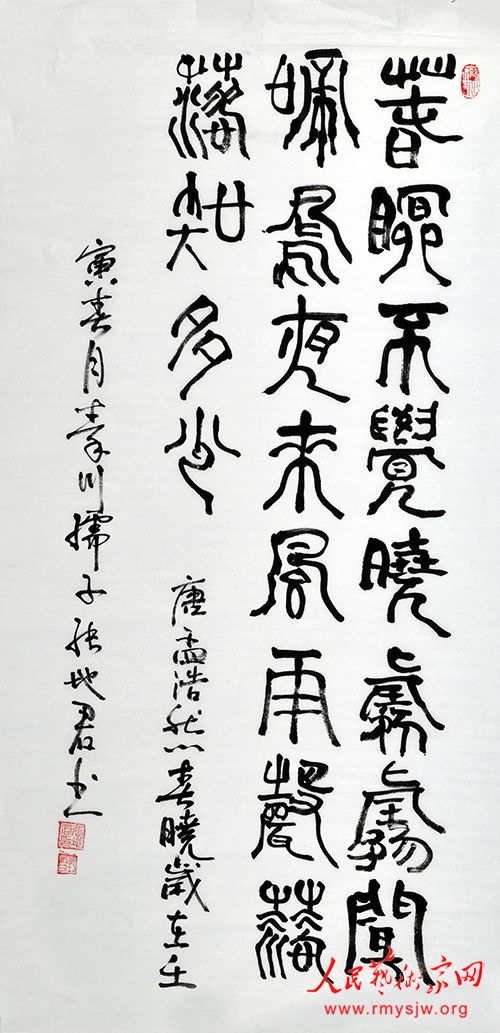 春眠不覺曉處處聞
啼鳥夜來風雨聲花
落知多少
唐孟浩然春曉歲在壬
寅春月秦川孺子張地君书
人民藝術家网
www.rmysjw.org